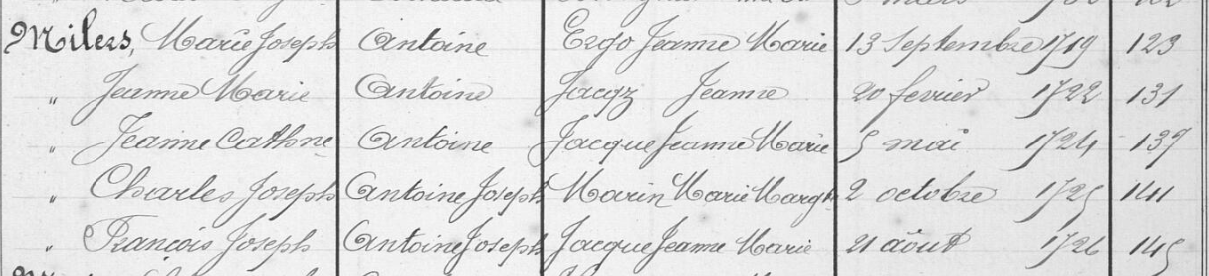 Milers, Marie Joseph Antoine Ergo Jeanne Marie 13 Septembre 1719 123
" Jeanne Marie Antoine Jacqz Jeanne 20 fevrier 1722 131
" Jeanne Cathne Antoine Jacque Jeanne Marie 5 mai 1724 137
" Charles Joseph Antoine Joseph Marin Marie Margte 2 octobre 1725 141
" François Joseph Antoine Joseph Jacque Jeanne Marie 21 août 1726 145